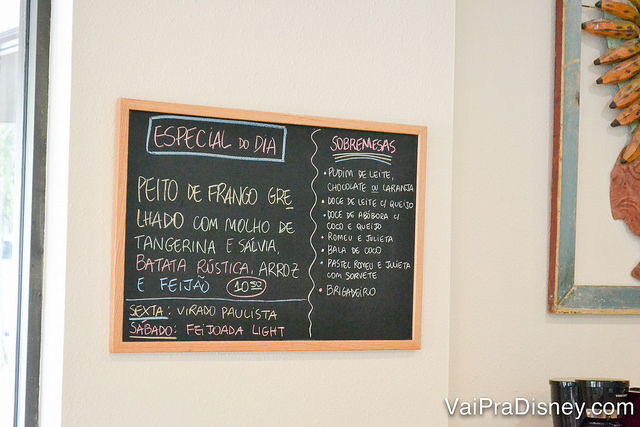 ESPECIAL DO DIA
PEITO DE FRANGO GRE
LHADO COM MOLHO DE
TANGERINA E SÁLVIA,
BATATA RÚSTICA, ARROZ
E FEIJÃO 10,50
SEXTA: VIRADO PAULISTA
SÁBADO: FEIJOADA LIGHT
SOBREMESAS
• PUDIM DE LEITE,
CHOCOLATE OU LARANJA
• DOCE DE LEITE C/ QUEIJO
• DOCE DE ABÓBORA C/
COCO E QUEIJO
• ROMEU E JULIETA
• BALA DE COCO
• PASTEL ROMEU E JULIETA
COM SORVETE
• BRIGADEIRO
VaiPraDisney.com